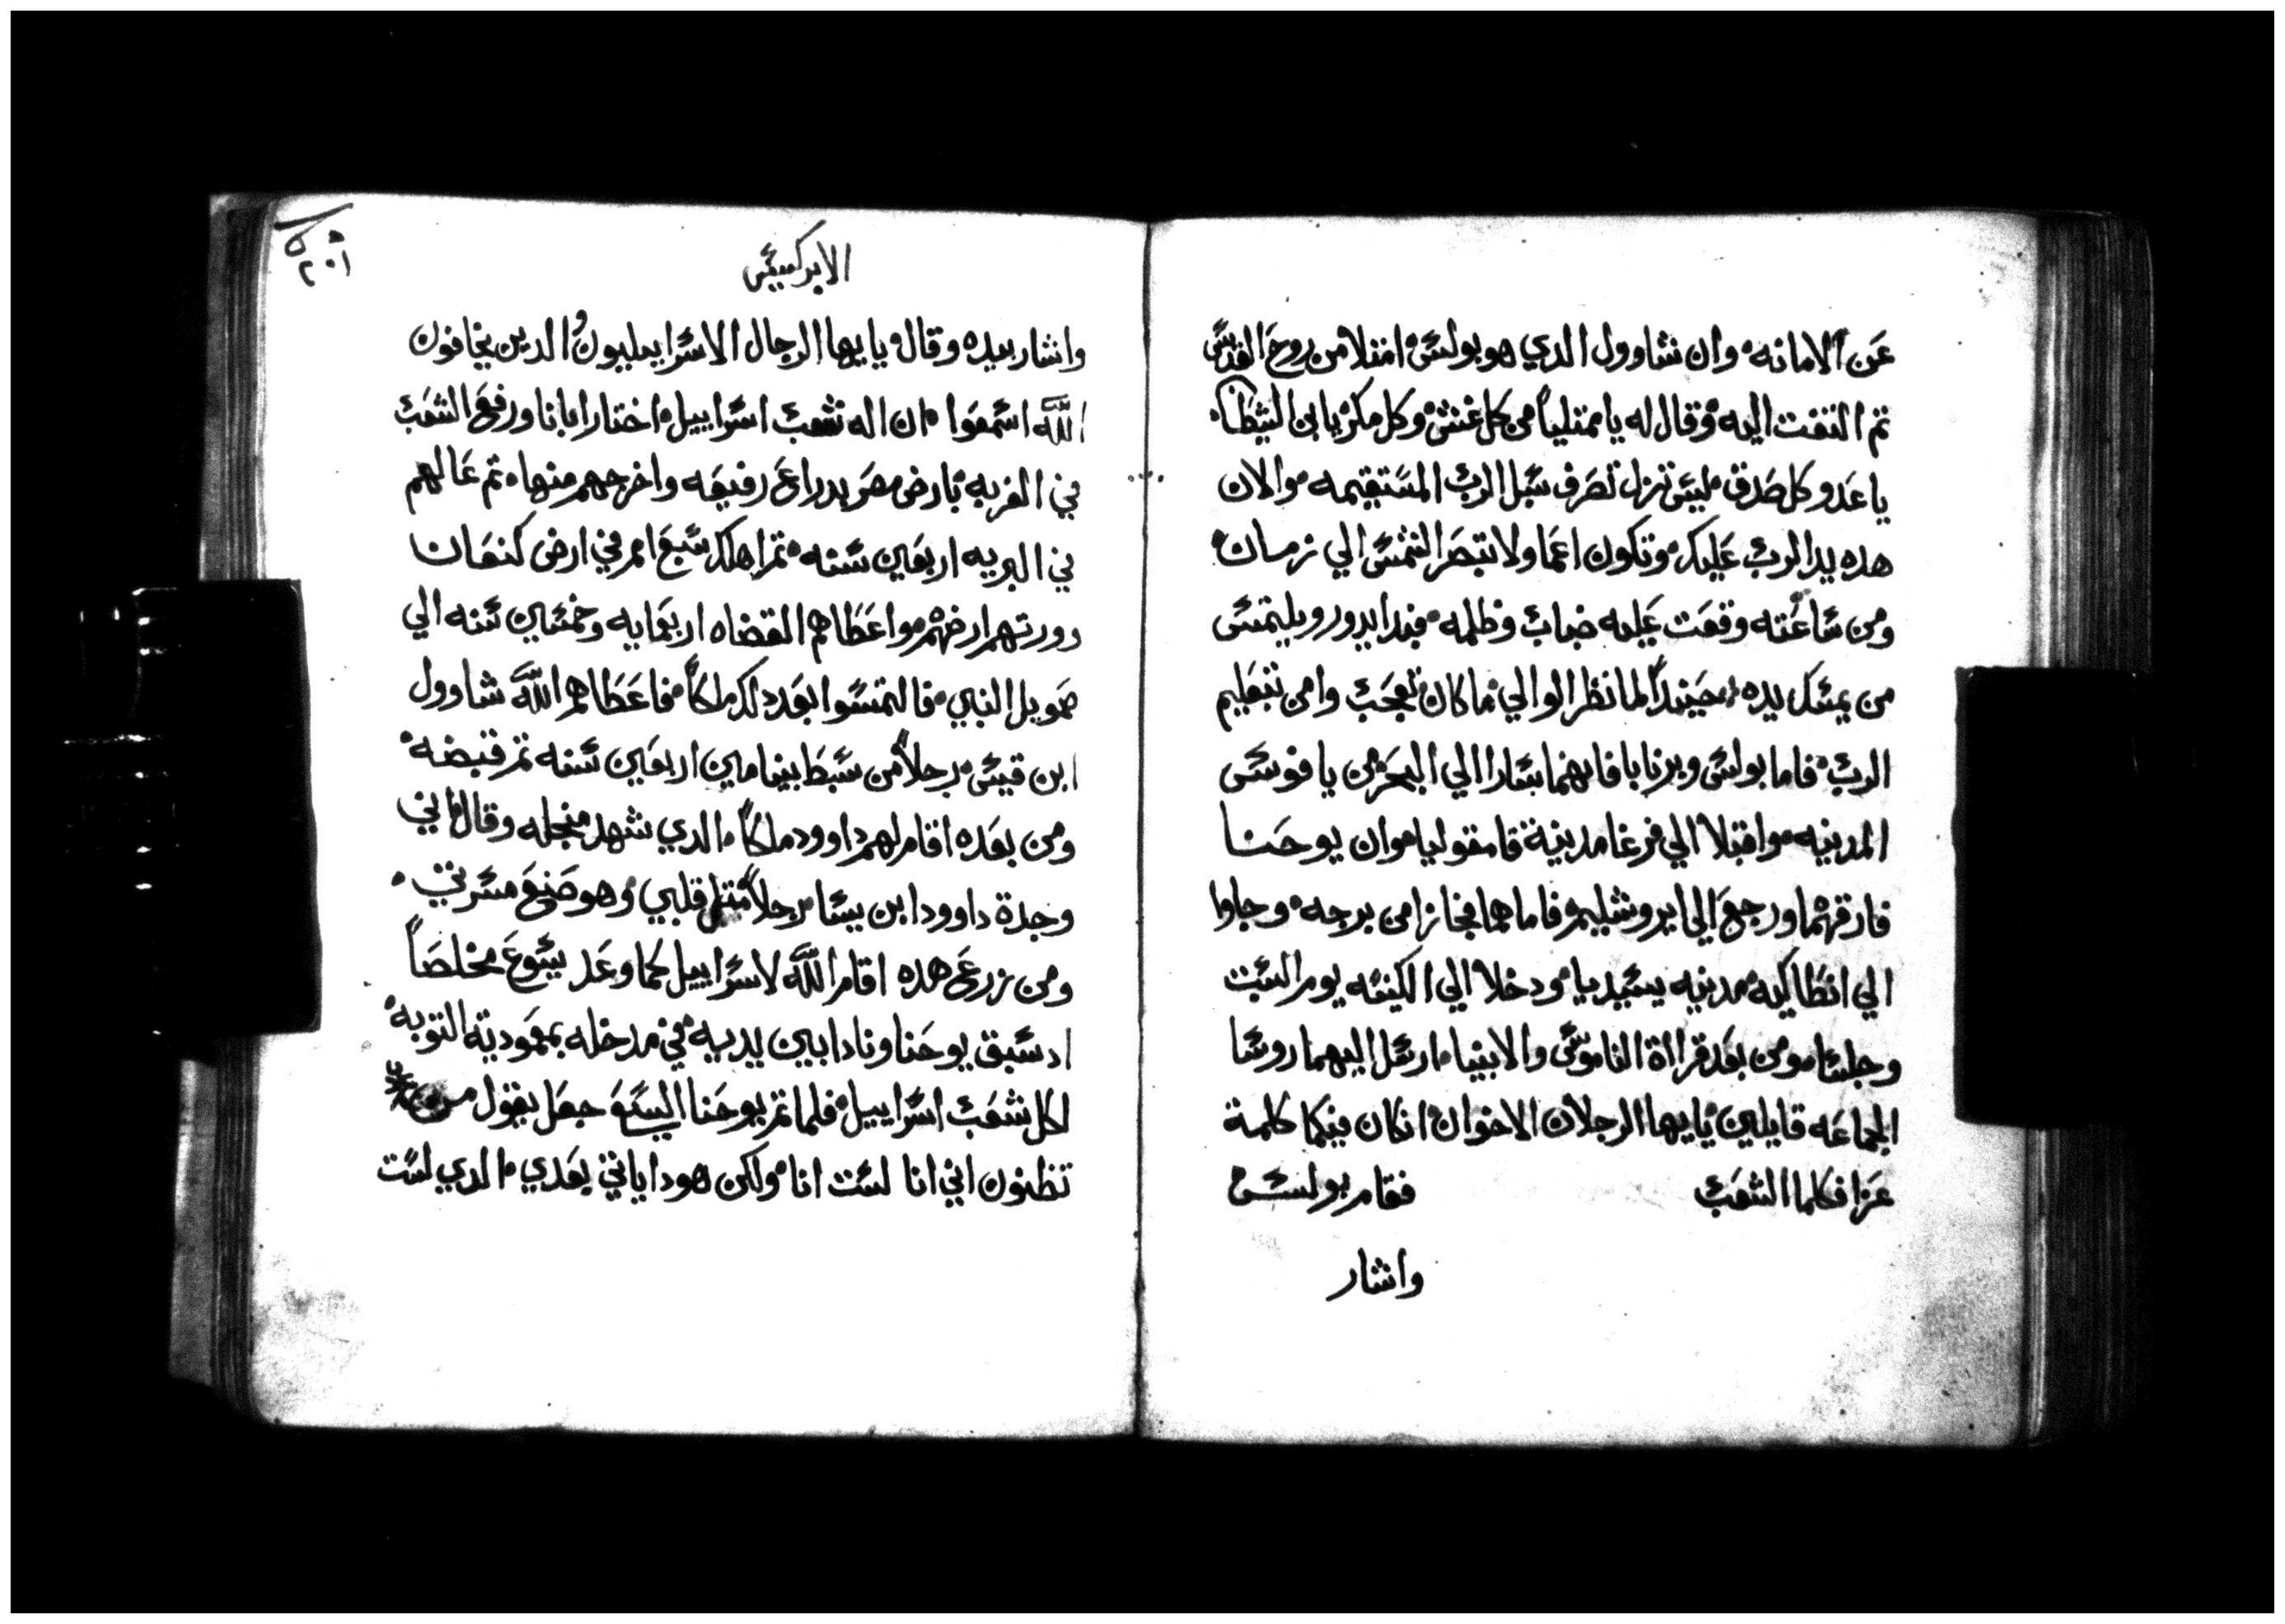 عن الامانه وان شاوول الدي هو بولس امتلا من روح القدس
تم التفت اليه وقال له يا ممتلياً من كل غش وكل مكر يا بن الشيطان
يا عدو كل صدق ليس تزل تصرف سبل الرب المستقيمه والان
هده يد الرب عليك وتكون اعما ولا تبصر الشمس الي زمان
ومن ساعته وقعت عليه ضباب وظلمه فبدا يدور ويلتمس
من يمسك يده حينيداً لما نظر الوالي ما كان تعجب وامن بتعليم
الرب فاما بولس وبرنابا فانهما سارا الي البحر من يافوس
المدينه واقبلا الي فرغا مدينة قامفوليا وان يوحنا
فارقهما ورجع الي ايروشليم فاما هما فجازا من برجه وجاوا
الي انطاكيه مدينه بيسيديا ودخلا الي الكنيسه يوم السبت
وجلسا ومن بعد قراة الناموس والانبيا ارسل اليهما روسا
الجماعه قايلين يا يها الرجلان الاخوان انكان فيكما كلمة
عزا فكلما الشعب فقام بولس
واشار
٢٠١
الابركسيس
واشار بيده وقال يا يها الرجال الاسراييليون والدين يخافون
الله اسمعوا ان اله شعب اسراييل اختار ابانا ورفع الشعب
في الغربه بارض مصر بدراع رفيعه واخرجهم منها تم عالهم
في البريه اربعين سنه تم اهلك سبع امم في ارض كنعان
وورتهم ارضهم واعطاهم القضاه اربعمايه وخمسين سنه الي
صمويل النبي فالتمسوا بعد دلك ملكاً فاعطاهم الله شاوول
ابن قيس رجلاً من سبط بنيامين اربعين سنه تم قبضه
ومن بعده اقام لهم داوود ملكاً الدي شهد منجله وقال اني
وجدة داوود ابن يسا رجلاً متل قلبي وهو صنع مسرتي
ومن زرع هده اقام الله لاسراييل كما وعد يسوع مخلصاً
اد سبق يوحنا ونادا بين يديه في مدخله بمعمودية التوبه
لكل شعب اسراييل فلما تم يوحنا السع جعل يقول من
تظنون اني انا لست انا ولكن هودا ياتي بعدي الدي لست